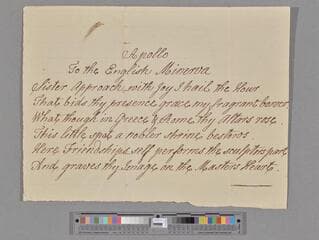 Apollo
To the English Minerva
Sister Approach with Joy I hail the Hour
That bids thy presence grace my fragrant bower
What though in Greece & Rome thy Alters rose
This little spot a nobler shrine bestows
Here Friendships self performs the sculptors part
And graves thy Image on the Masters Heart.